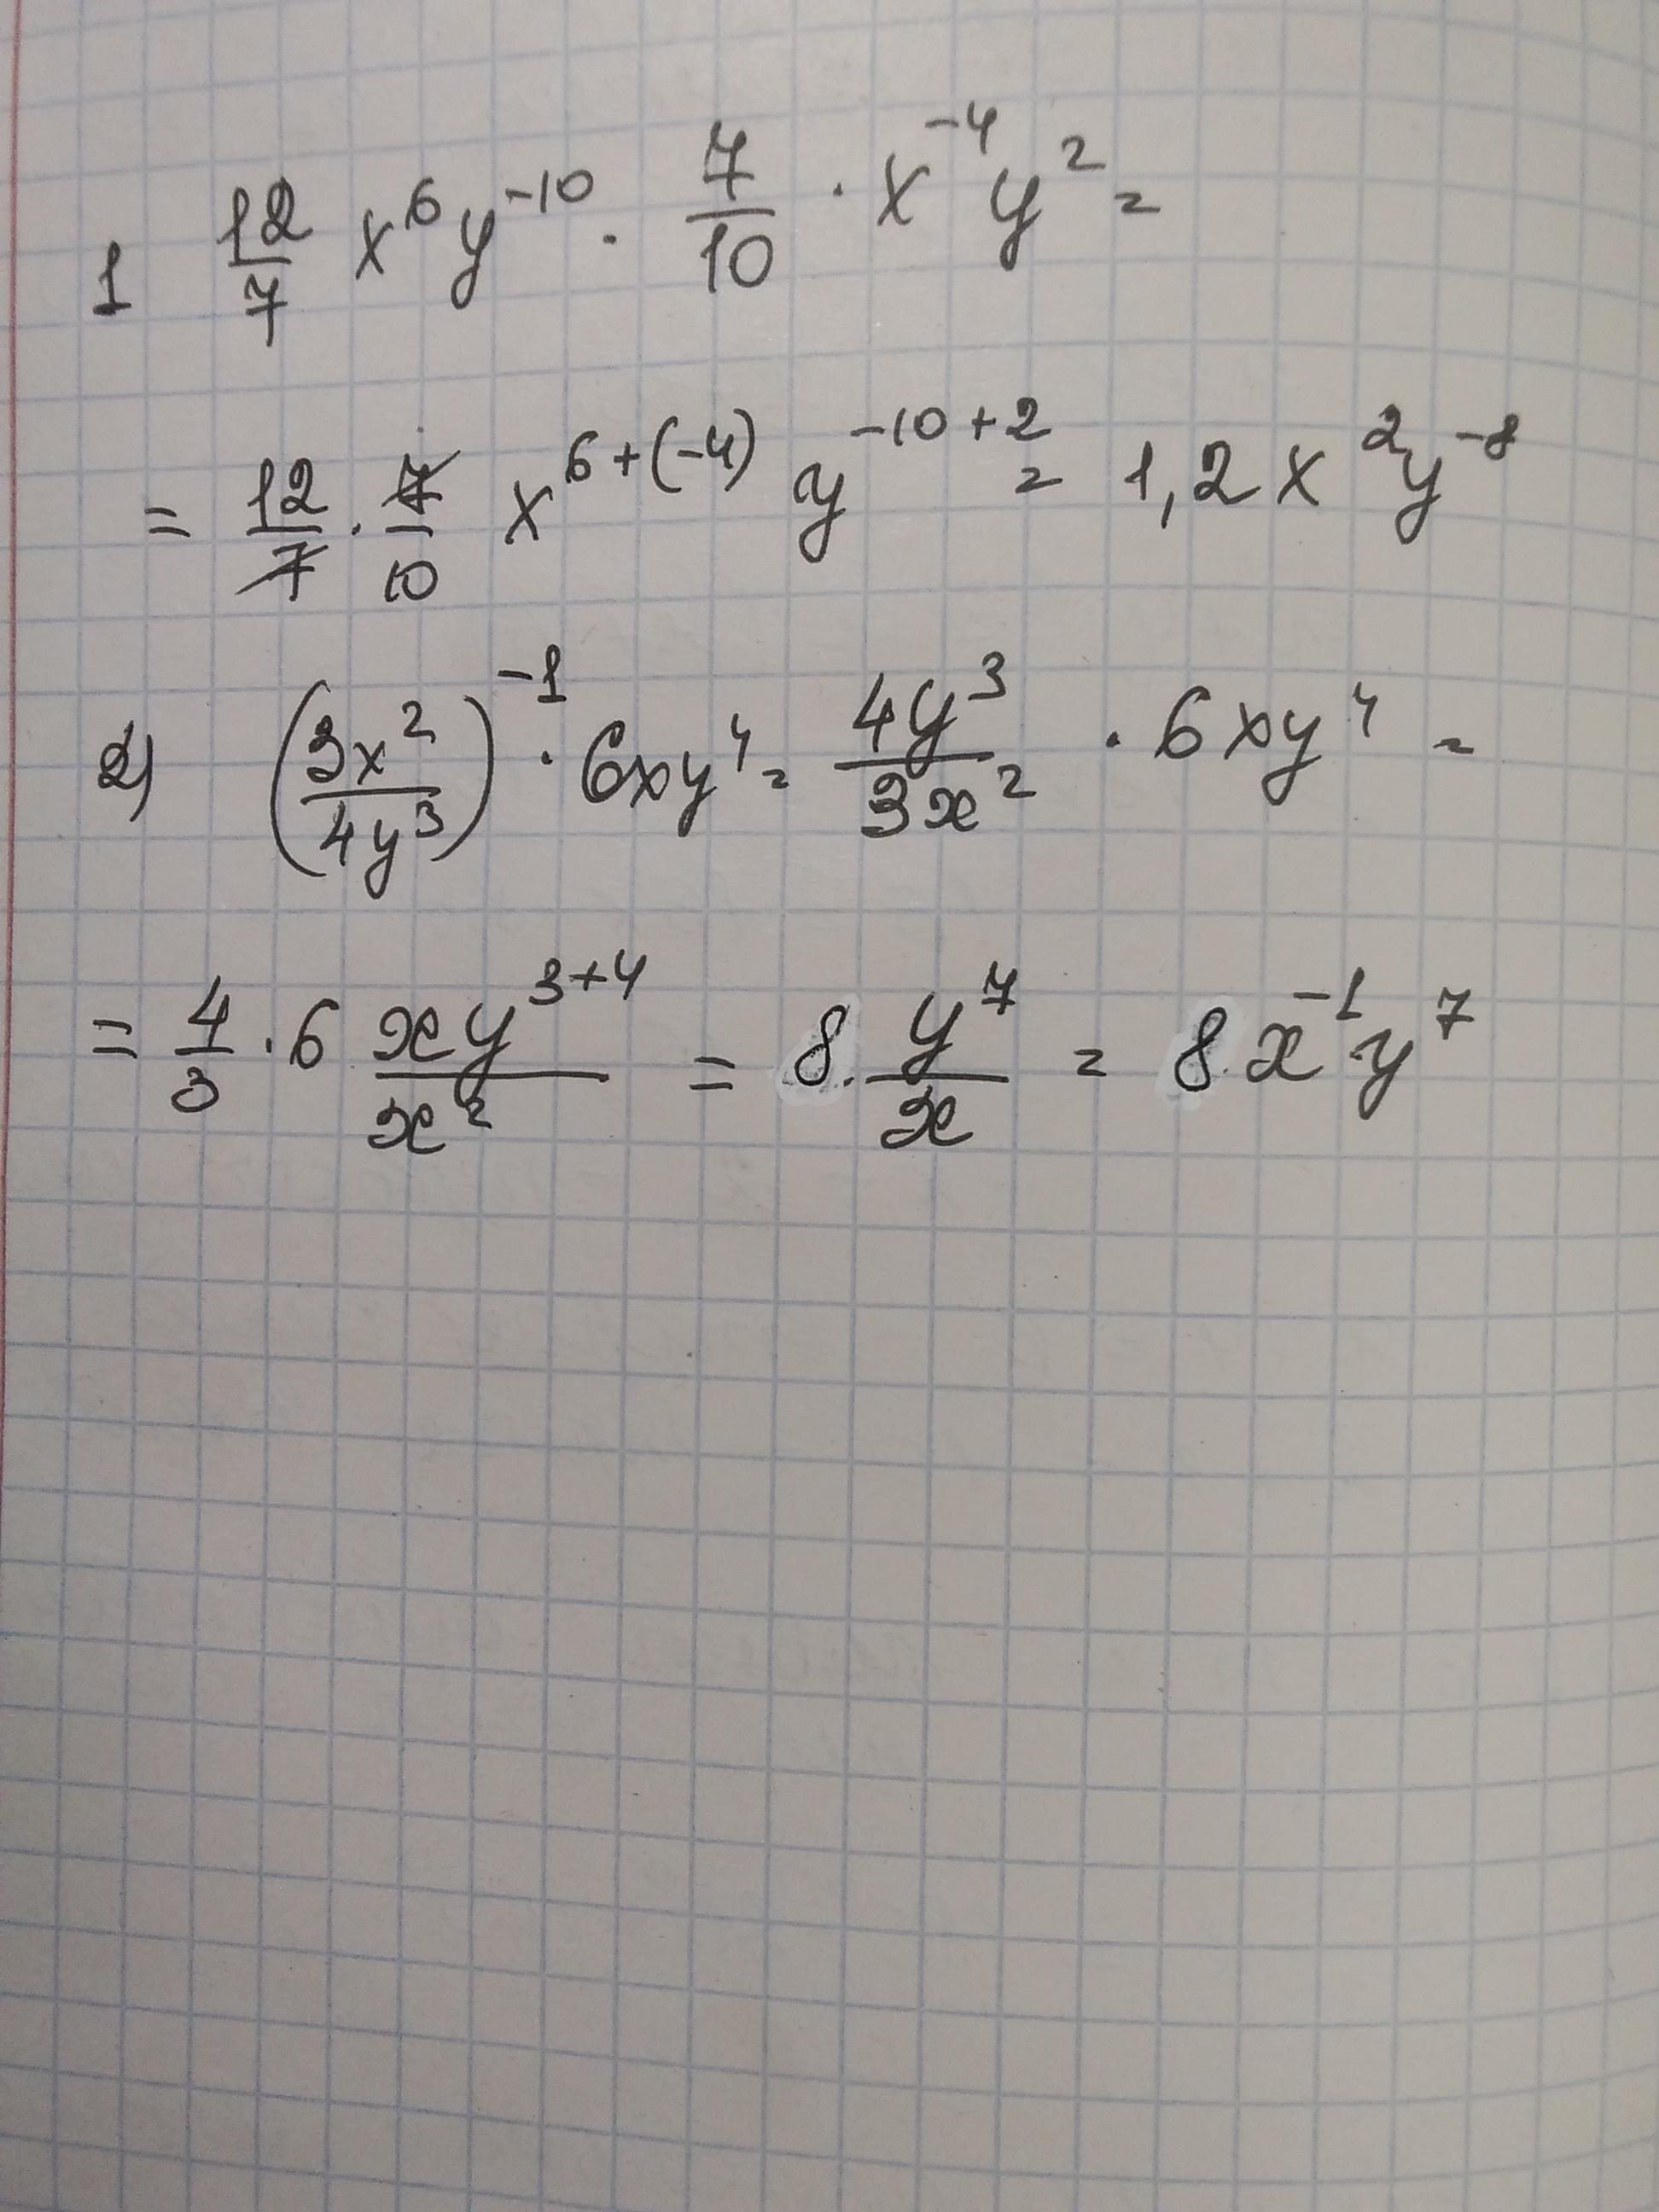 1 12/7 x⁶y⁻¹⁰ · 7/10 · x⁻⁴y² =
= 12/7 · 7/10 x⁶⁺⁽⁻⁴⁾ y⁻¹⁰⁺² = 1,2x²y⁻⁸
2) (3x²/4y³)⁻¹ · 6xy⁴ = 4y³/3x² · 6xy⁴ =
= 4/3 · 6 xy³⁺⁴/x² = 8 · y⁷/x = 8x⁻¹y⁷